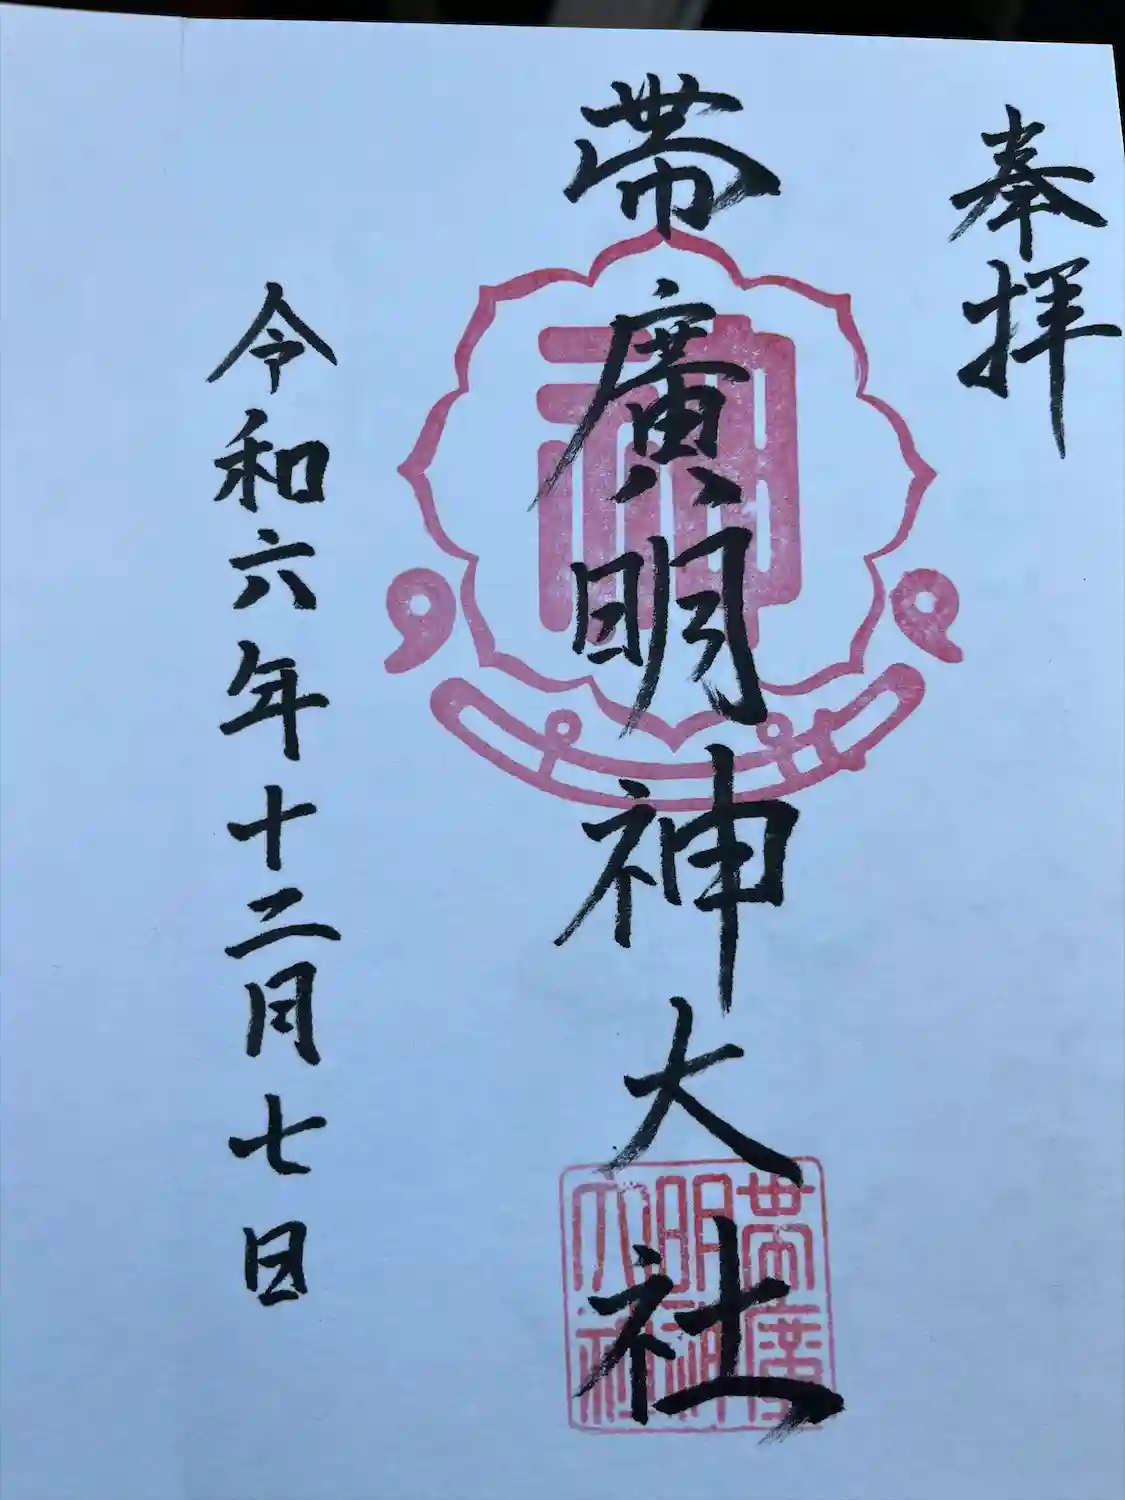 奉拝
帯廣明神大社
神
帯廣
明神
大社
令和六年十二月七日